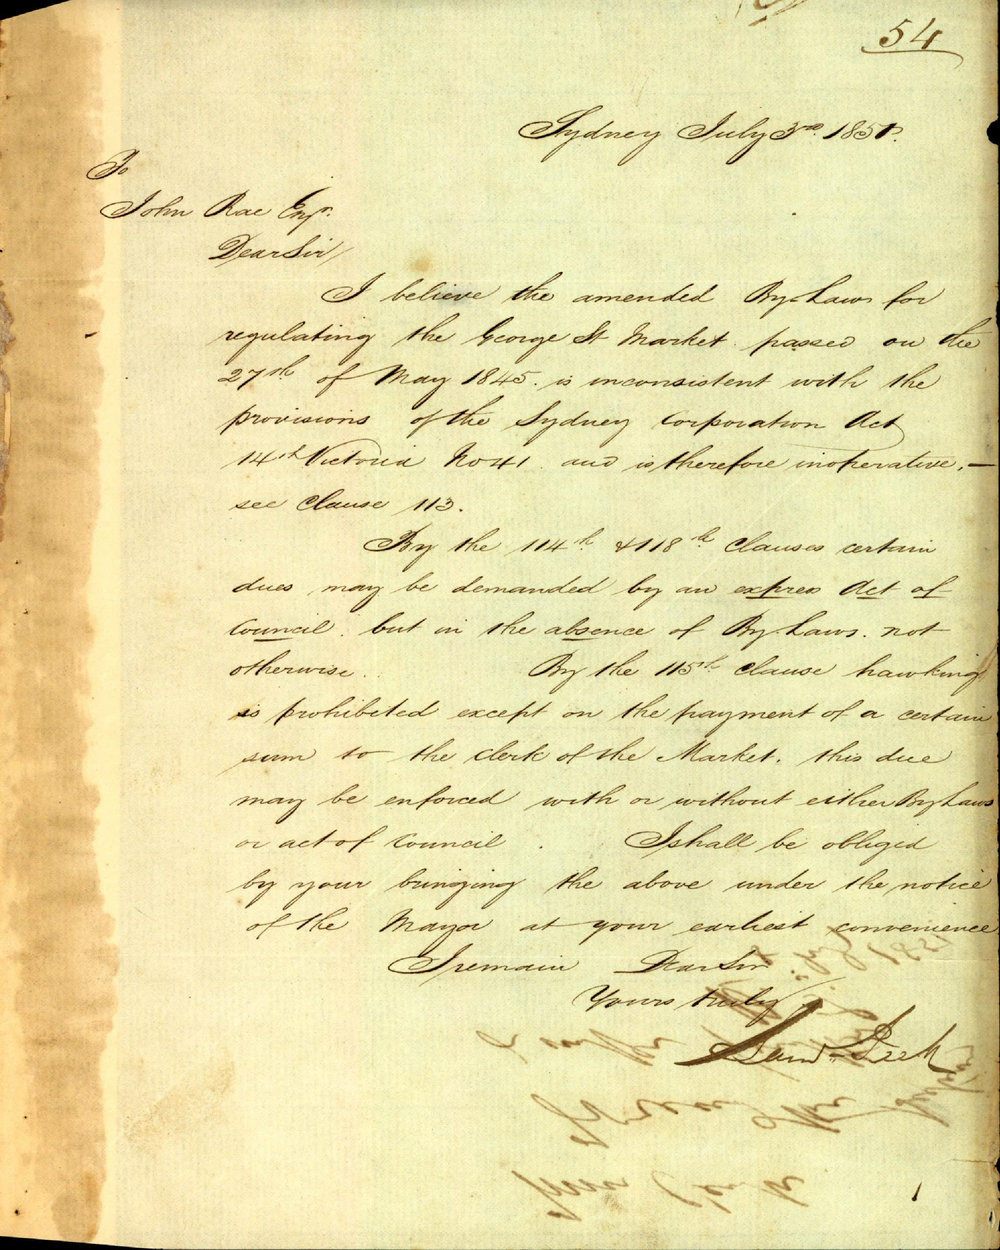 54
Sydney July 3rd. 1851.
To
John Rae Esqr.
Dear Sir/
I believe the amended By-Laws for
regulating the George St Market passed on the
27th of May 1845. is inconsistent with the
provisions of the Sydney Corporation Act
14th Victoria No 41. and is therefore inoperative. —
see Clause 113.
By the 114th & 118th Clauses certain
dues may be demanded by an express Act of
Council. but in the absence of By-Laws. not
otherwise. By the 115th Clause hawking
is prohibited except on the payment of a certain
sum to the Clerk of the Market. this due
may be enforced with or without either By Laws
or act of Council. I shall be obliged
by your bringing the above under the notice
of the Mayor at your earliest convenience
I remain Dear Sir
Yours truly
Saml. Peek